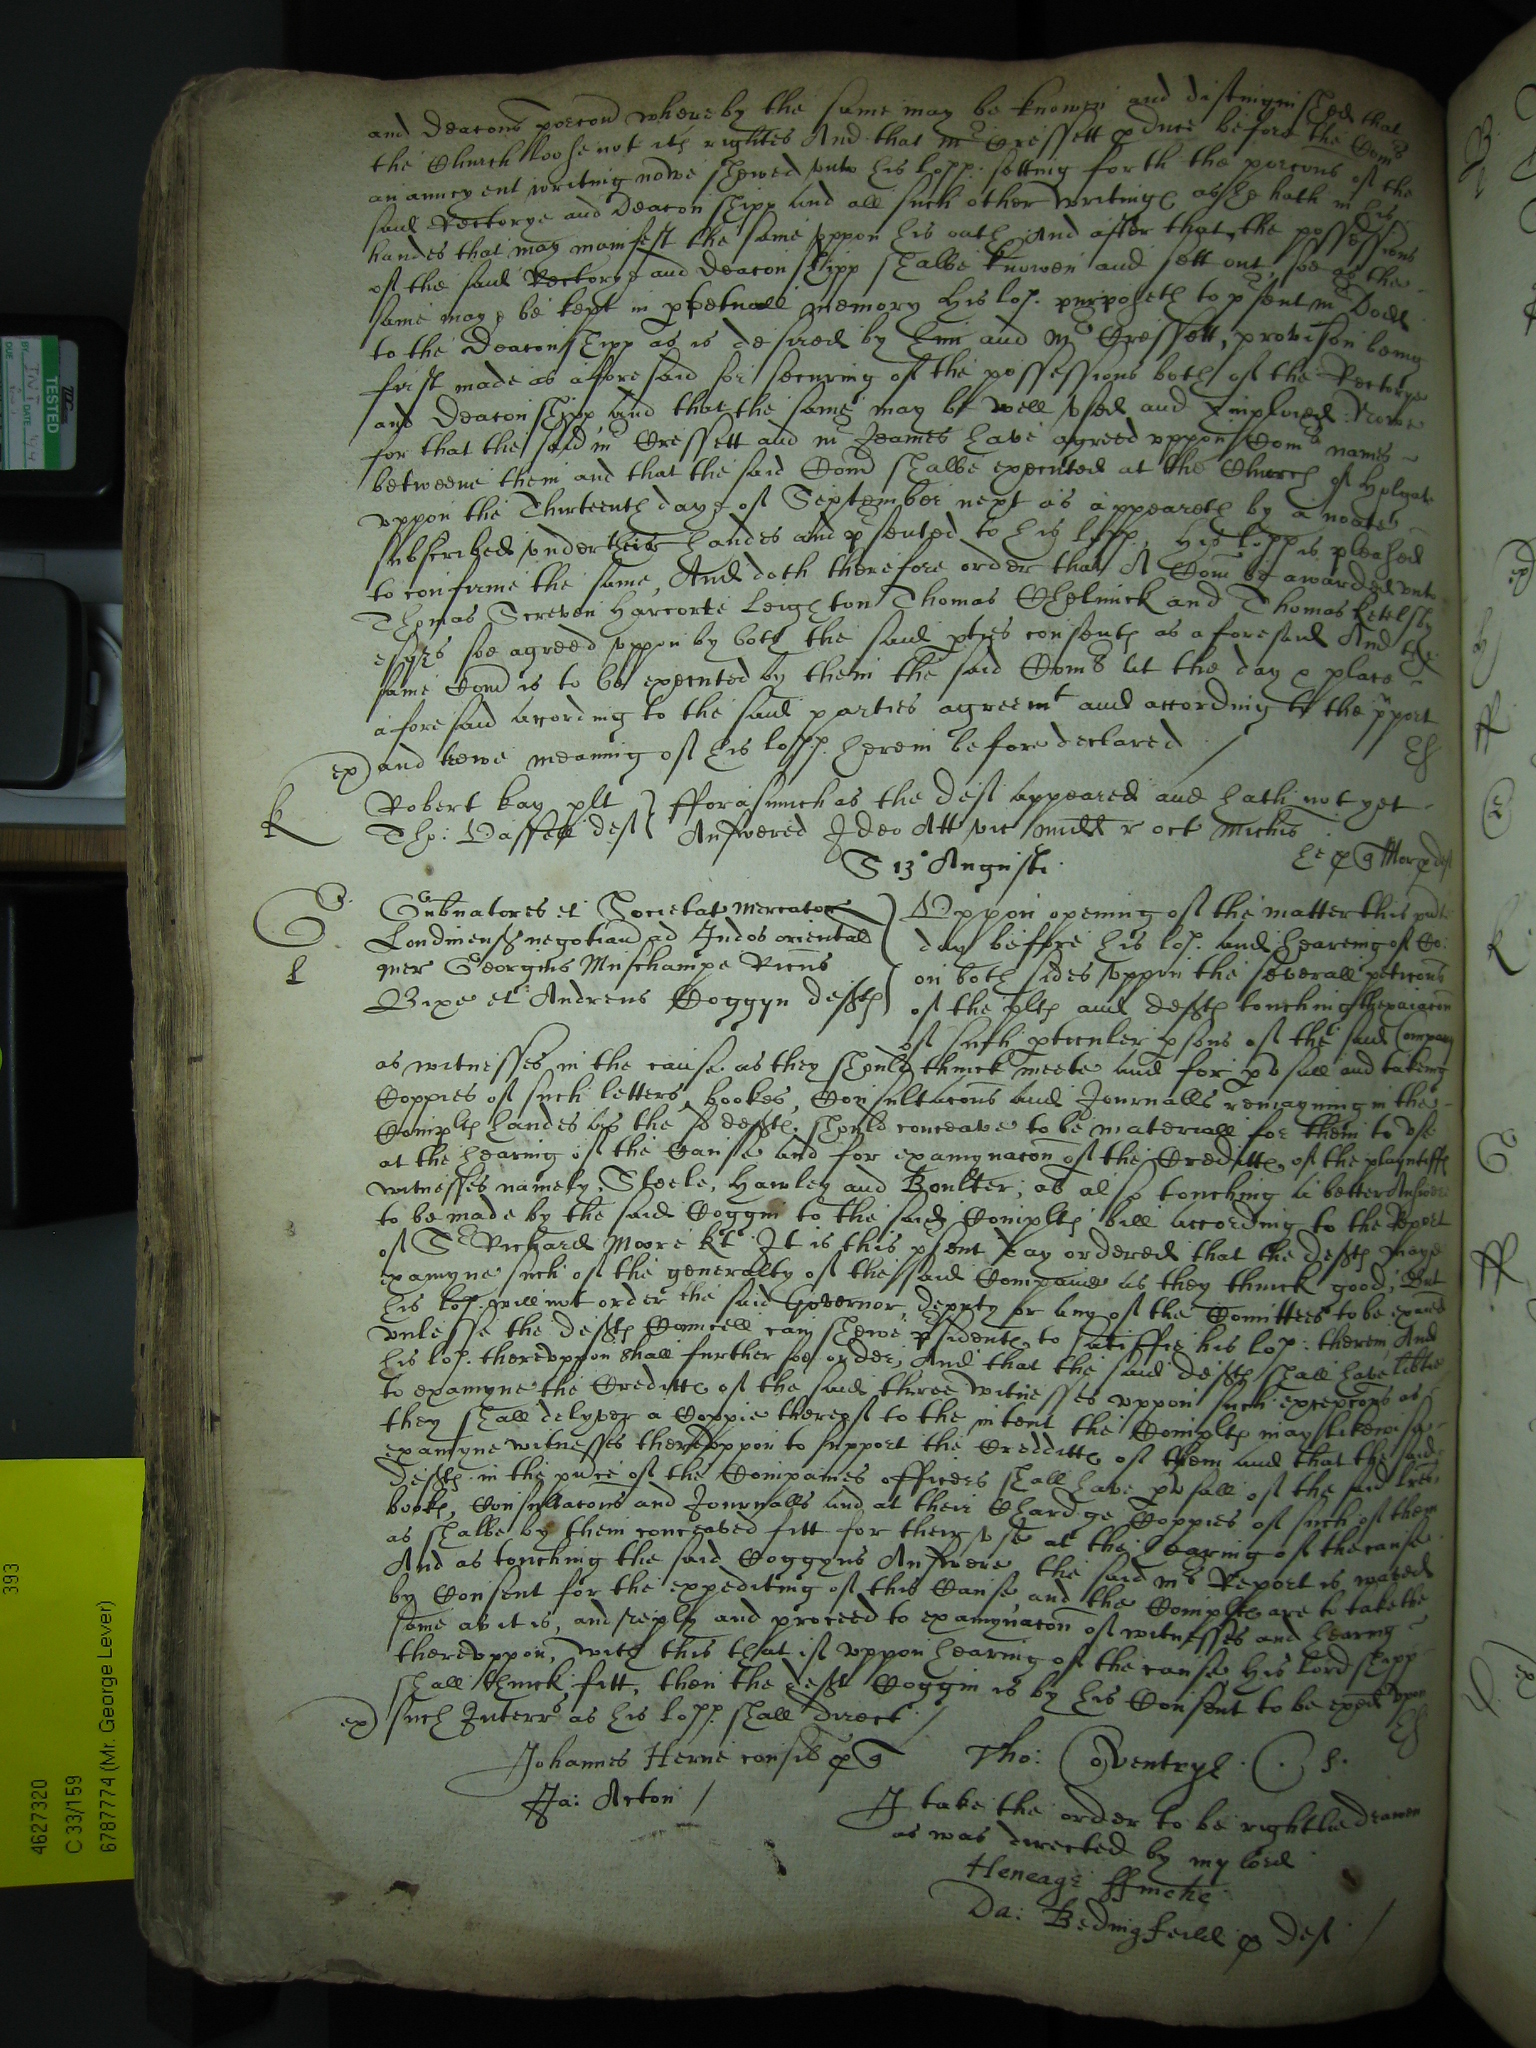 and Deacons porcon whereby the same may be knowen and distinguished that
the Church loose not its rightes And that mr Cressett pduce before the Comrs
an auncyent writing nowe shewed unto his lopp: setting forth the porcons of the
said Rectorye and Deaconshipp And all such other writinges as he hath in his
handes that may manifest the same uppon his oath And after that the possessions
of the said Rectorye and Deaconshipp shalbe knowen and sett out, soe as the
same maye be kept in ppetuall memory His lop. purposeth to psent mr Dodd
to the Deaconshipp as is desired by him and Mr Cressett, provision being
first made as aforesaid for securing of the possessions both of the Rectorye
and Deaconshipp, And that the same may be well used and Imployed. Nowe
for that the said mr Cressett and mr Jeames have agreed uppon Comrs names
betweene them and that the said Comn shalbe executed at the Church of Holgate
uppon the Thirteenth daye of September next as appeareth by a noate
subscribed under their handes and psented to his lopp, His lopp is pleased
to confirme the same, And doth therefore order that A Comn be awarded unto
Thomas Screven Harcorte Leighton Thomas Chelmick and Thomas Ketelsby
esqrs soe agreed uppon by both the said pties consents as aforesaid And the
same Comn is to be executed by them the said Comrs at the day & place
aforesaid according to the said parties agreemt and according to the purport
ex) and trewe meaning of his lopp. herein before declared /
K Robert kay plt } fforasmuch as the deft appeared and hath not yet
Tho: deft } Answered Ideo Att vic midd r oct Michis
S 13o Augusti
G Gubnatores et Societat Mercator } Uppon opening of the matter this pnte
Londinens negotiand ad Indos oriental } day before his lop. and heareing of Co:
L quer Georgius Muschampe Ricus } on both sides uppon the severall peticons
Bixe et Andreus Coggyn defts } of the plts and defts touching the
of such pticuler psons of the said Company
as witnesses in the cause as they should thinck meete and for pusall and taking
Coppies of such letters, bookes, Consultacons and Journalls remayning in the
Complts handes as the sd defts. should conceave to be materiall for them to use
at the hearing of the Cause and for examynacon of the Creditts of the playntiffs
witnesses namely, Steele, Hawley and Boulter; as also touching a better Answere
to be made by the said Coggin to the said Complts bill according to the Report
of Sr Richard Moore kt. It is this psent day ordered that the defts maye
examyne such of the generalty of the said Companie as they thinck good, But
his lop. will not order the said Governor, deputy or any of the Comittees to be exaied
unlesse the defts Councell can shewe psidents to satisffie his lop: therein And
his lop. thereuppon shall further soe order, And that the said defts shall have libtie
to examyne the Creditts of the said three witnesses uppon such excepcons as
they shall delyver a Coppie thereof to the intent the Complts may likewise
examyne witnesses thereuppon to support the Creditts of them and that the said
defts in the pnce of the Companies officers shall have pusall of the said lres
books, Consultacons and Journalls and at their Chardge Coppies of such of them
as shalbe by them conceaved fitt for their use at the hearing of the cause
And as touching the said Coggyns Answere the said mrs Report is waved
by Consent for the expediting of this Cause, and the Complts are to take the
same as it is, and reply and proceed to examynacon of witnesses and hearing
thereuppon, with this that if uppon hearing of the cause His lordshipp
shall thinck fitt, then the deft Coggin is by his Consent to be exaied uppon
ex) such Interrs as his lopp. shall direct /
Johannes Herne consil p q Tho: Coventrye. C. S.
Ja: Acton /
I take the order to be rightlie drawen
as was directed by my lord
Heneage ffinche
Da: Bedingfeild p def /
TESTED
DATE
DUE
393
4627320
C 33/159
6787774 (Mr. George Lever)